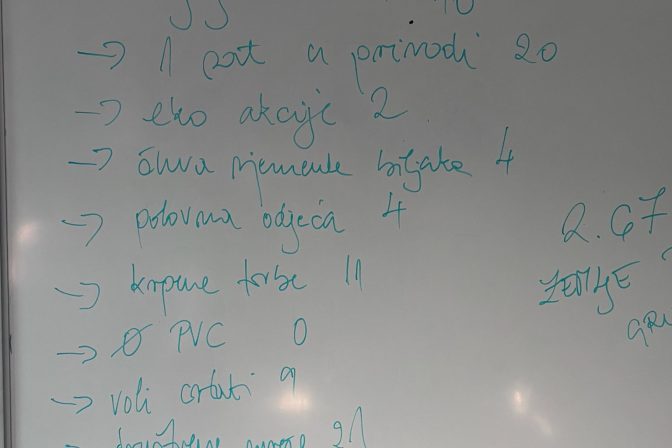 → 1 sat u prirodi 20
→ eko akcije 2
→ čuva sjemenke biljaka 4
→ polovna odjeća 4
→ krpene torbe 11
→ Ø PVC 0
→ voli crtati 9
21
2.67
ZEMLJE